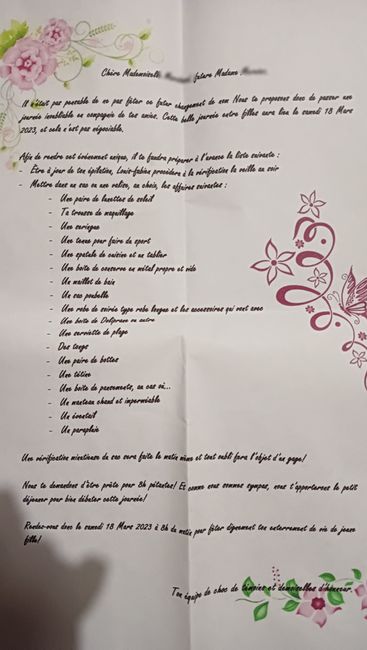 Chère Mademoiselle future Madame
Il n'était pas possible de ne pas fêter ce futur changement de nom Nous te proposons donc de passer une
journée inoubliable en compagnie de tes amies. Cette belle journée entre filles aura lieu le samedi 18 Mars
2023, et cela n'est pas négociable.
Afin de rendre cet événement unique, il te faudra préparer à l'avance la liste suivante :
- Être à jour de ton épilation, Louis-Fabien procédera à la vérification la veille au soir
- Mettre dans un sac ou une valise, au choix, les affaires suivantes :
- Une paire de lunettes de soleil
- Ta trousse de maquillage
- Une seringue
- Une tenue pour faire du sport
- Une spatule de cuisine et un tablier
- Une boite de conserve en métal propre et vide
- Un maillot de bain
- Un sac poubelle
- Une robe de soirée type robe longue et les accessoires qui vont avec
- Une boite de Doliprane ou autre
- Une serviette de plage
- Des tongs
- Une paire de bottes
- Une tétine
- Une boîte de pansements, au cas où...
- Un manteau chaud et imperméable
- Un éventail
- Un parapluie
Une vérification minutieuse du sac sera faite le matin même et tout oubli fera l'objet d'un gage!
Nous te demandons d'être prête pour 8h pétantes! Et comme nous sommes sympas, nous t'apporterons le petit
déjeuner pour bien débuter cette journée!
Rendez-vous donc le samedi 18 Mars 2023 à 8h du matin pour fêter dignement ton enterrement de vie de jeune
fille!
Ton équipe de choc de témoins et demoiselles d'honneur.